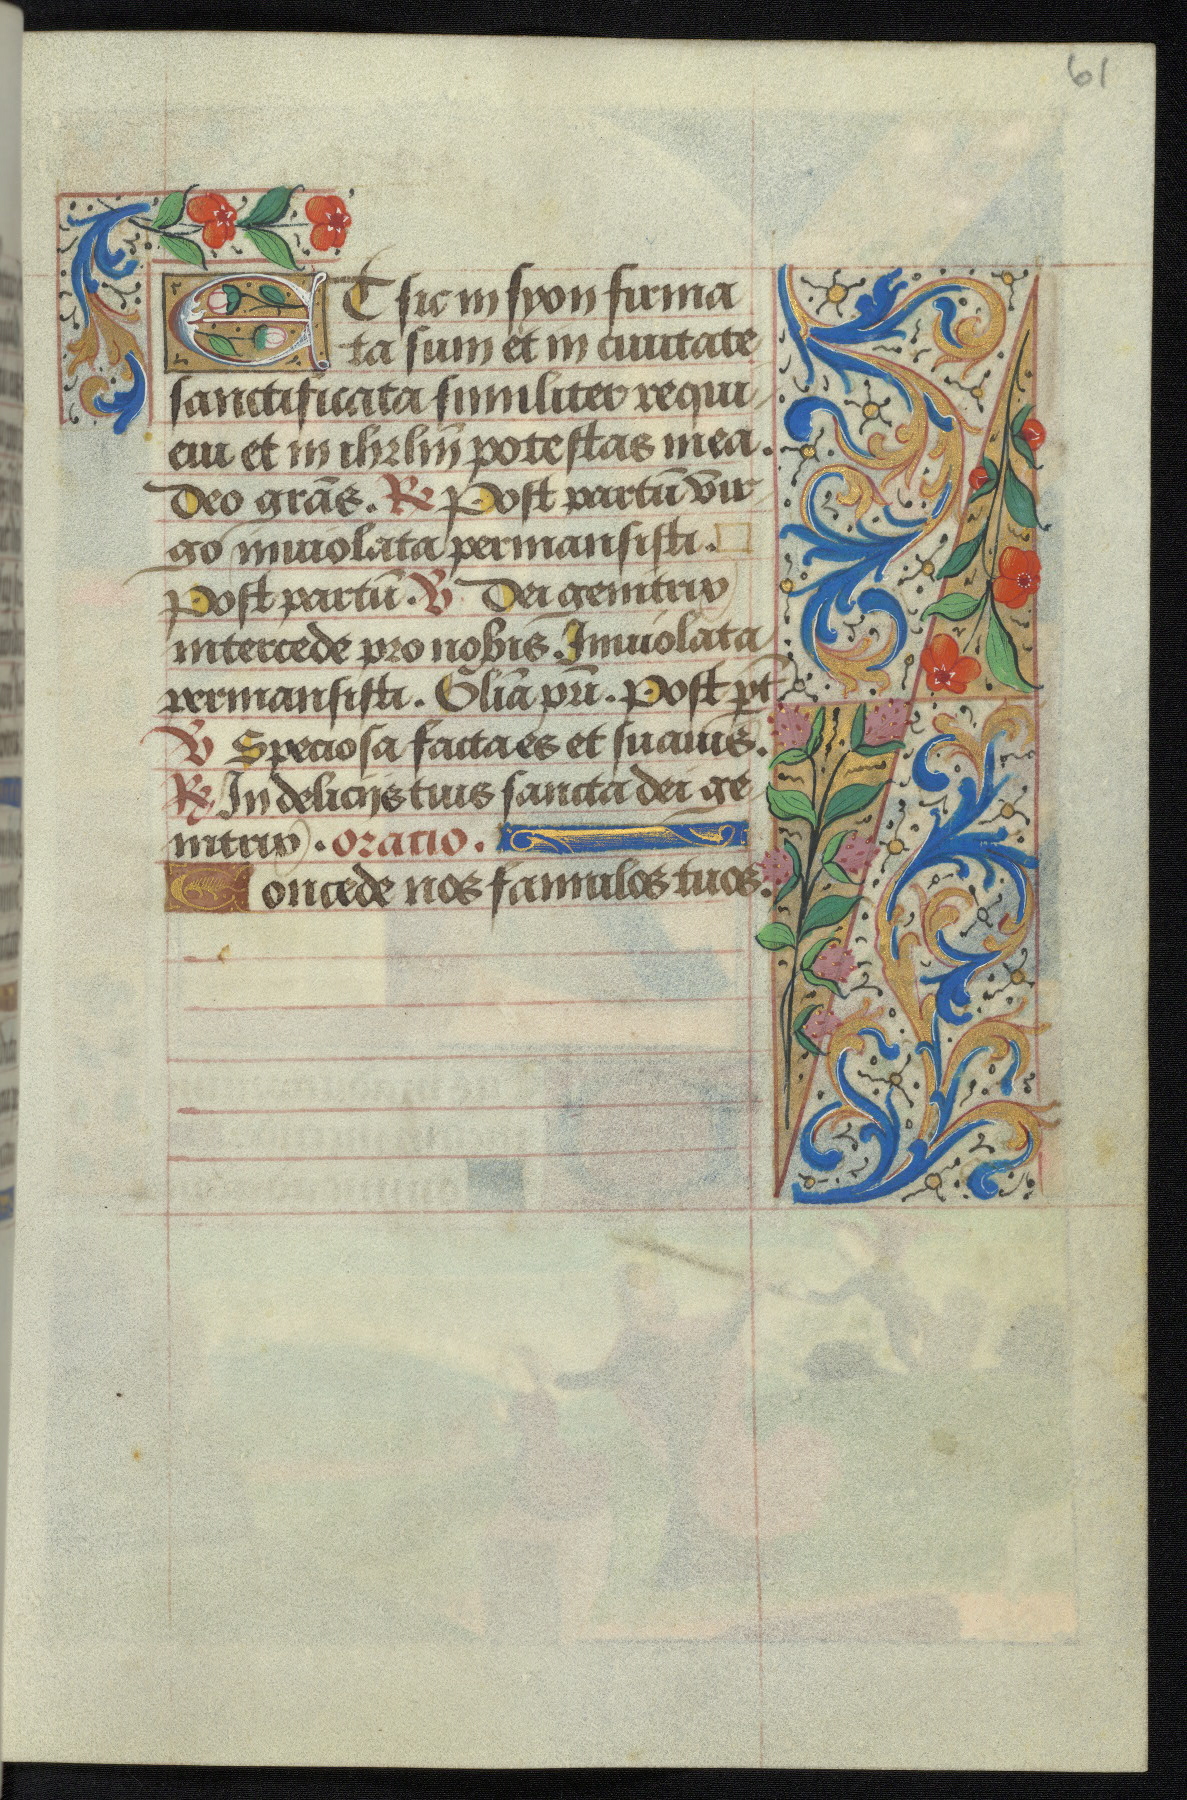 61
ET sic in syon firma
ta sum et in ciuitate
sanctificata similiter requi
eui et in ihrlm̄ potestas mea.
Deo grās. ℟ Post partū vir
go inuiolata permansisti.
Post partū. ℣ Dei genitrix
intercede pro nobis. Inuiolata
permansisti. Gl̄ia pr̄i. Post pt̄
℣ Speciosa facta es et suauis.
℟ In delicijs tuis sancta dei ge
nitrix. oracio.
Concede nos famulos tuos.